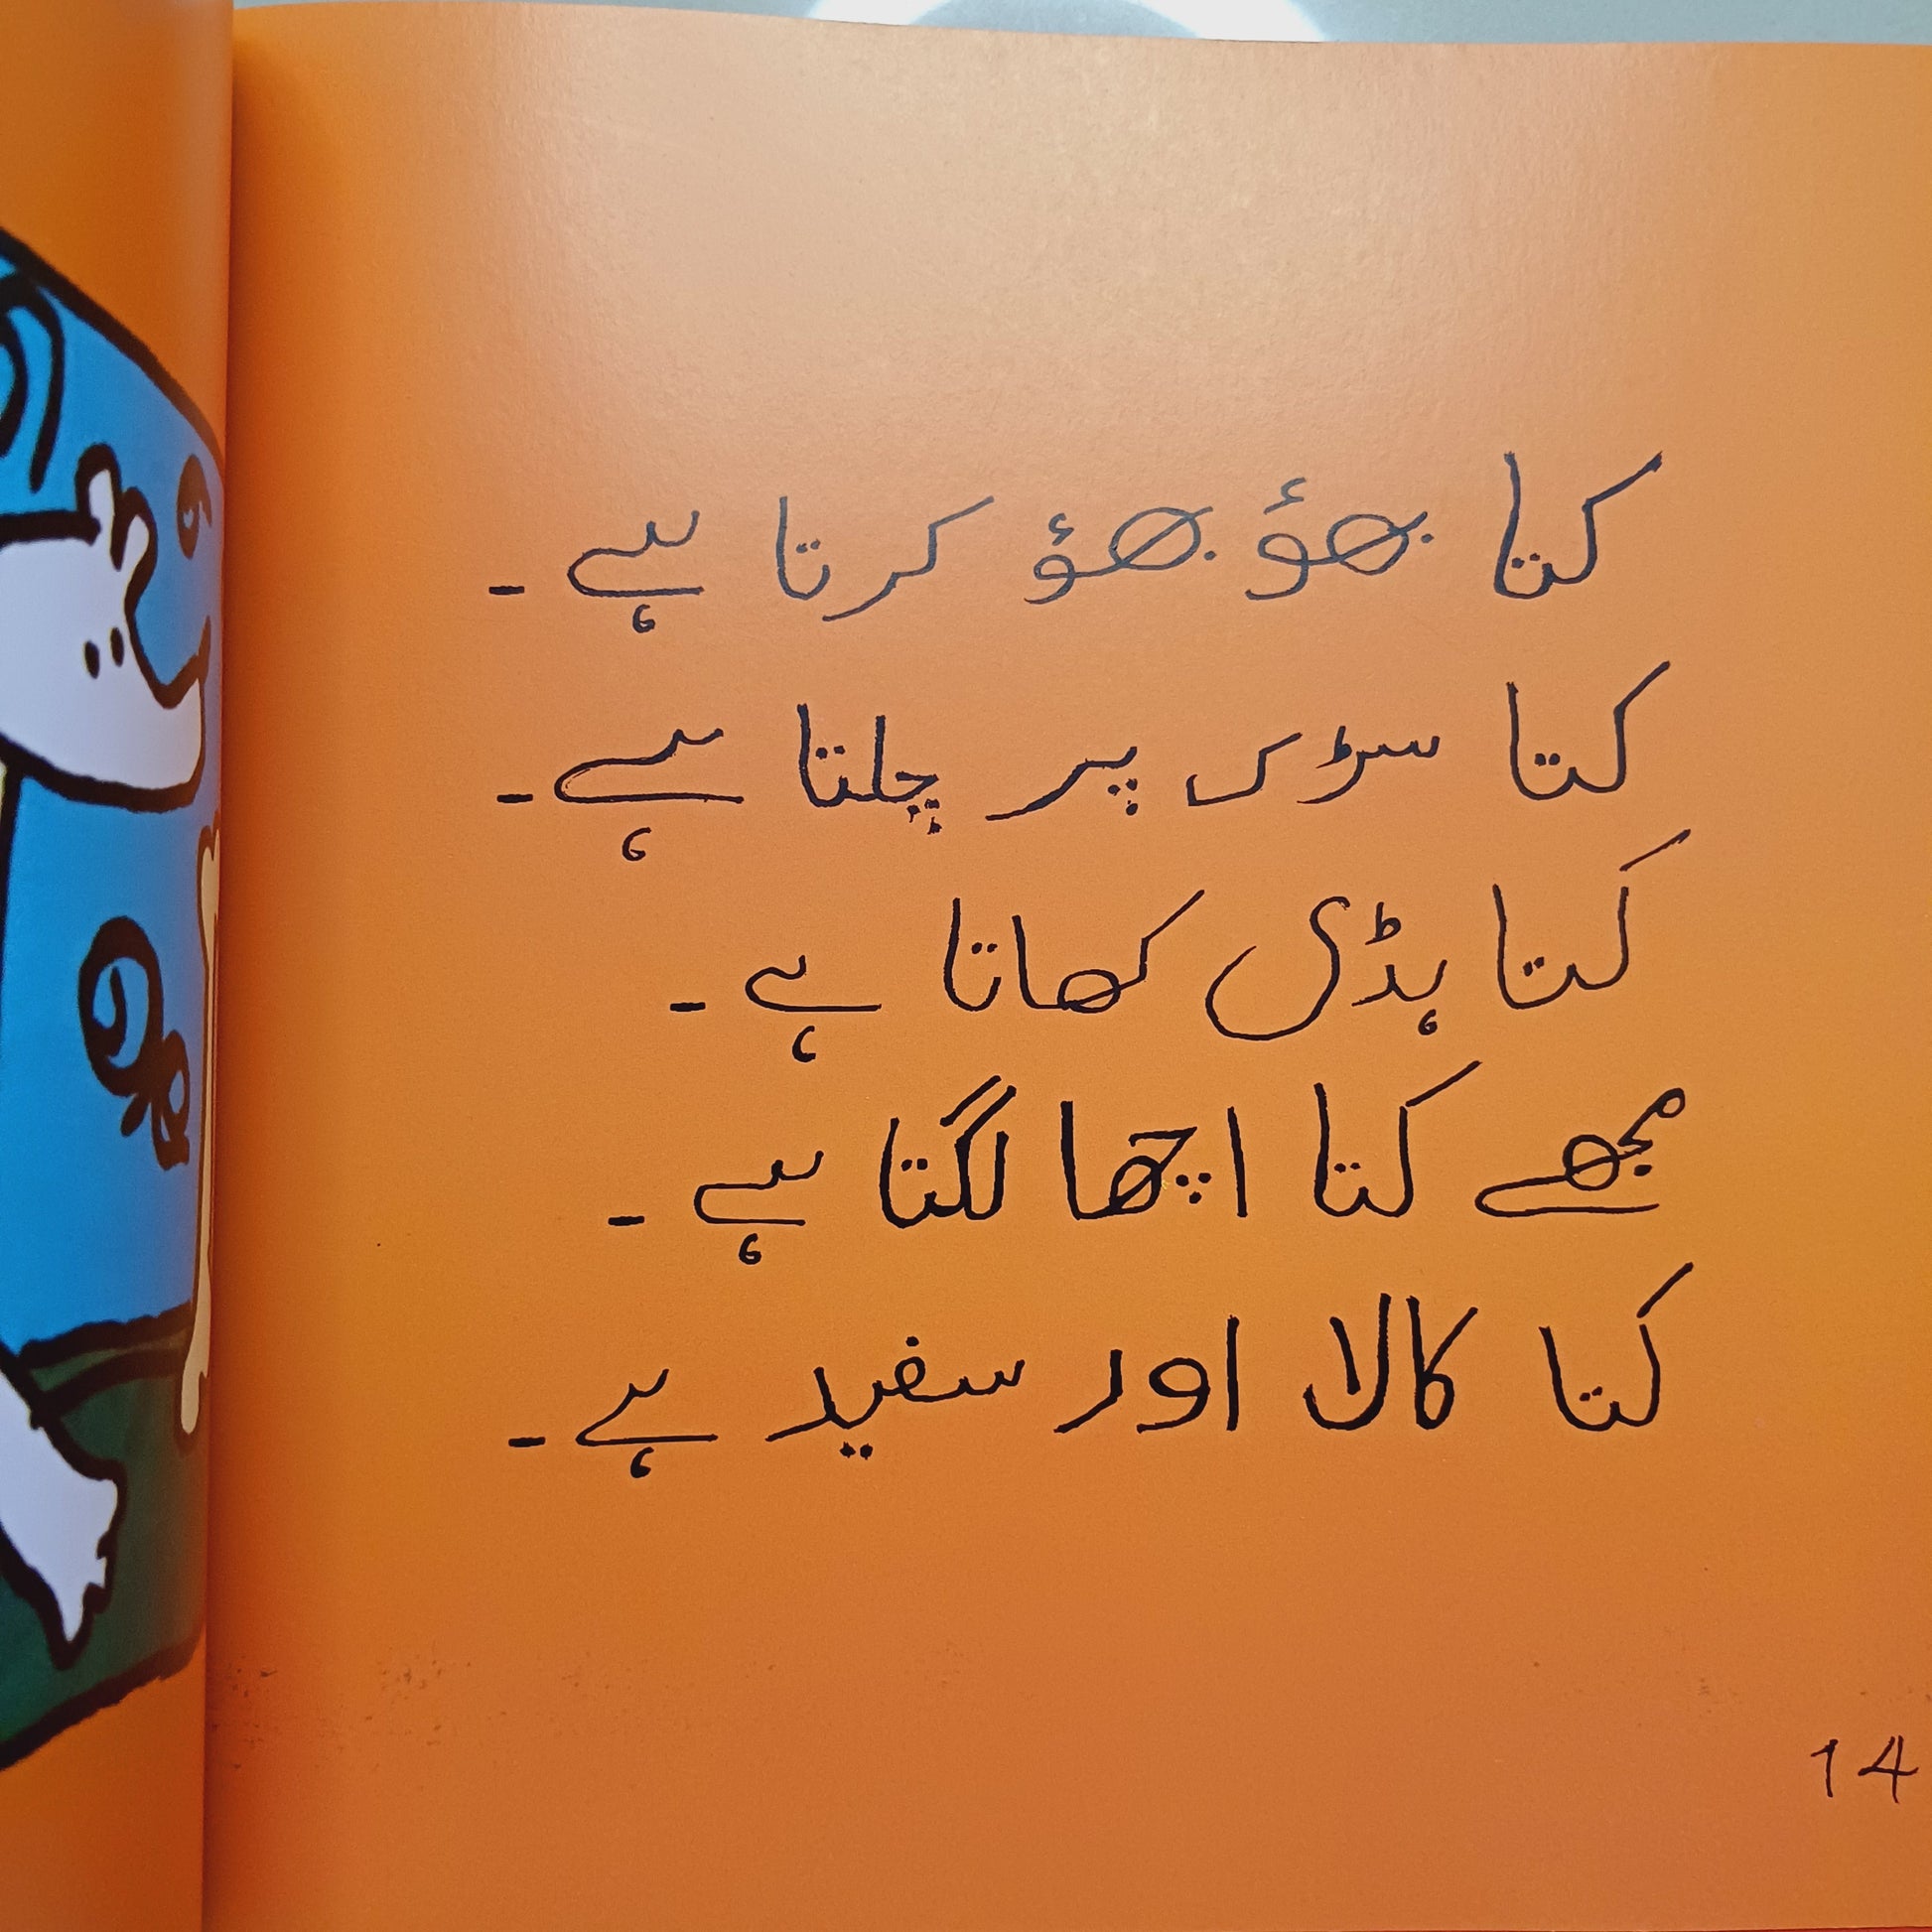 کتا بھؤ بھؤ کرتا ہے۔
کتا سڑک پر چلتا ہے۔
کتا ہڈی کھاتا ہے۔
مجھے کتا اچھا لگتا ہے۔
کتا کالا اور سفید ہے۔
14